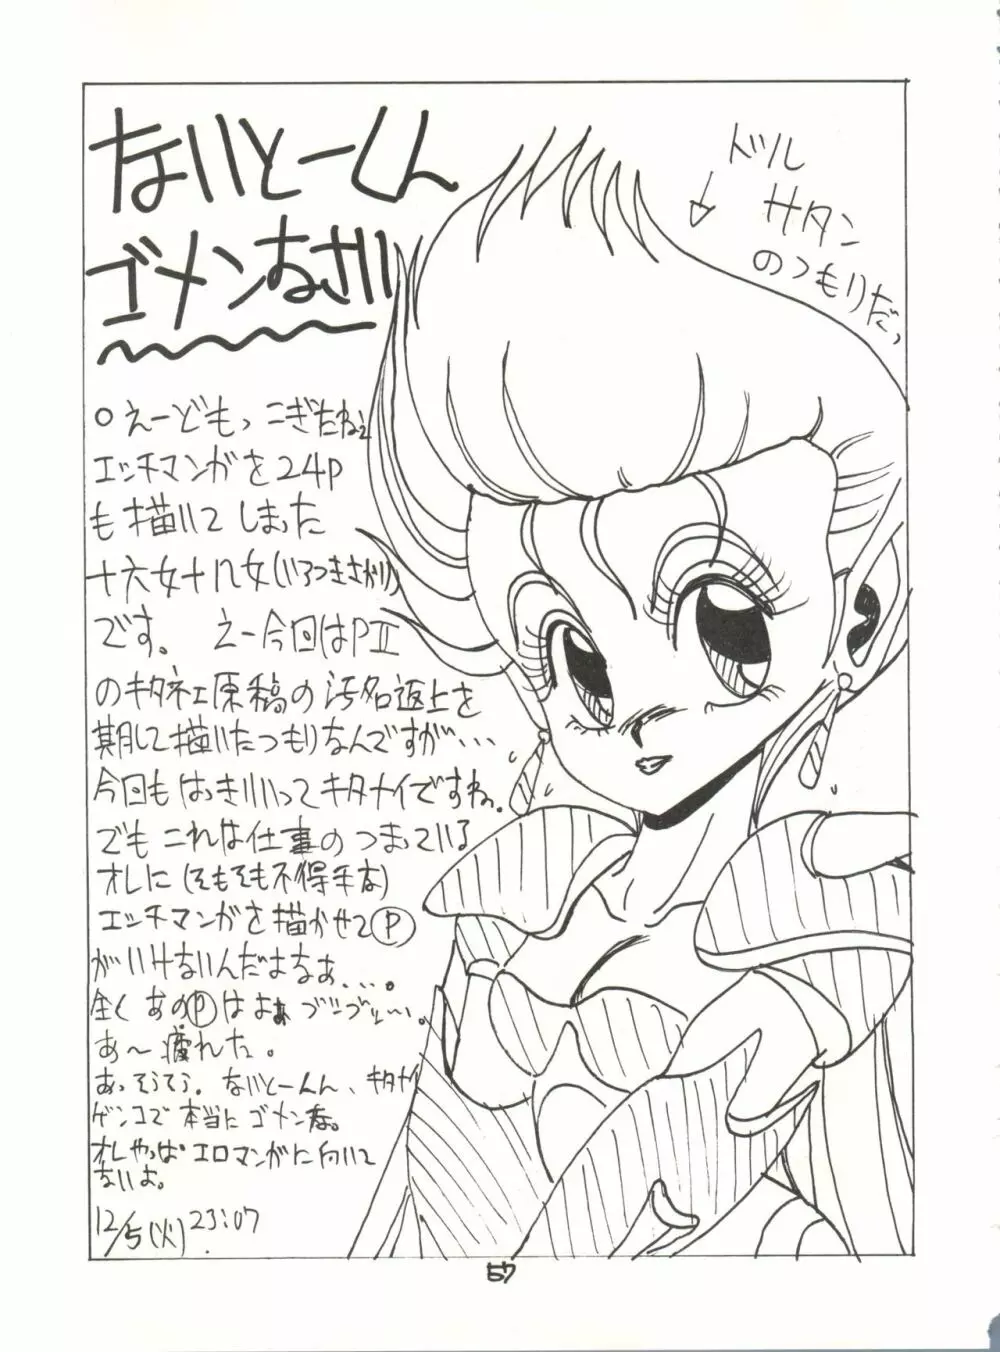 ないとーくん
ゴメンなさい
ドツル
サタン
のつもりだっ
○えーどもっ こぎたねェ
エッチマンガを24P
も描いてしまった
十六女十八女(いろつきさがり)
です。 えー今回はPⅡ
のキタネェ原稿の汚名返上を
期して描いたつもりなんですが…
今回もはっきりいってキタナイですね。
でもこれは仕事のつまっている
オレに(そもそも不得手な)
エッチマンガを描かせたⓅ
がいけないんだよなぁ…。
全くあのⓅはよぉ ブツブツ…。
あ〜疲れた。
あっそうそう。ないとーくん、キタナイ
ゲンコで本当にゴメンな。
オレやっぱエロマンガに向いて
ないよ。
12/5(火) 23:07
57